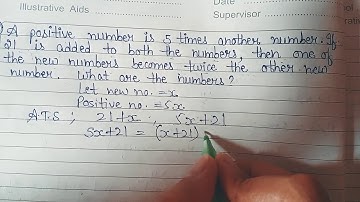 Illustrative Aids
Date
Supervisor
) A positive number is 5 times another number. If
21 is added to both the numbers, then one of
the new numbers becomes twice the other new
number. What are the numbers?
Let new no. = x.
Positive no. = 5x.
A.T.S ; 21+x. 5x+21
5x+21 = (x+21)